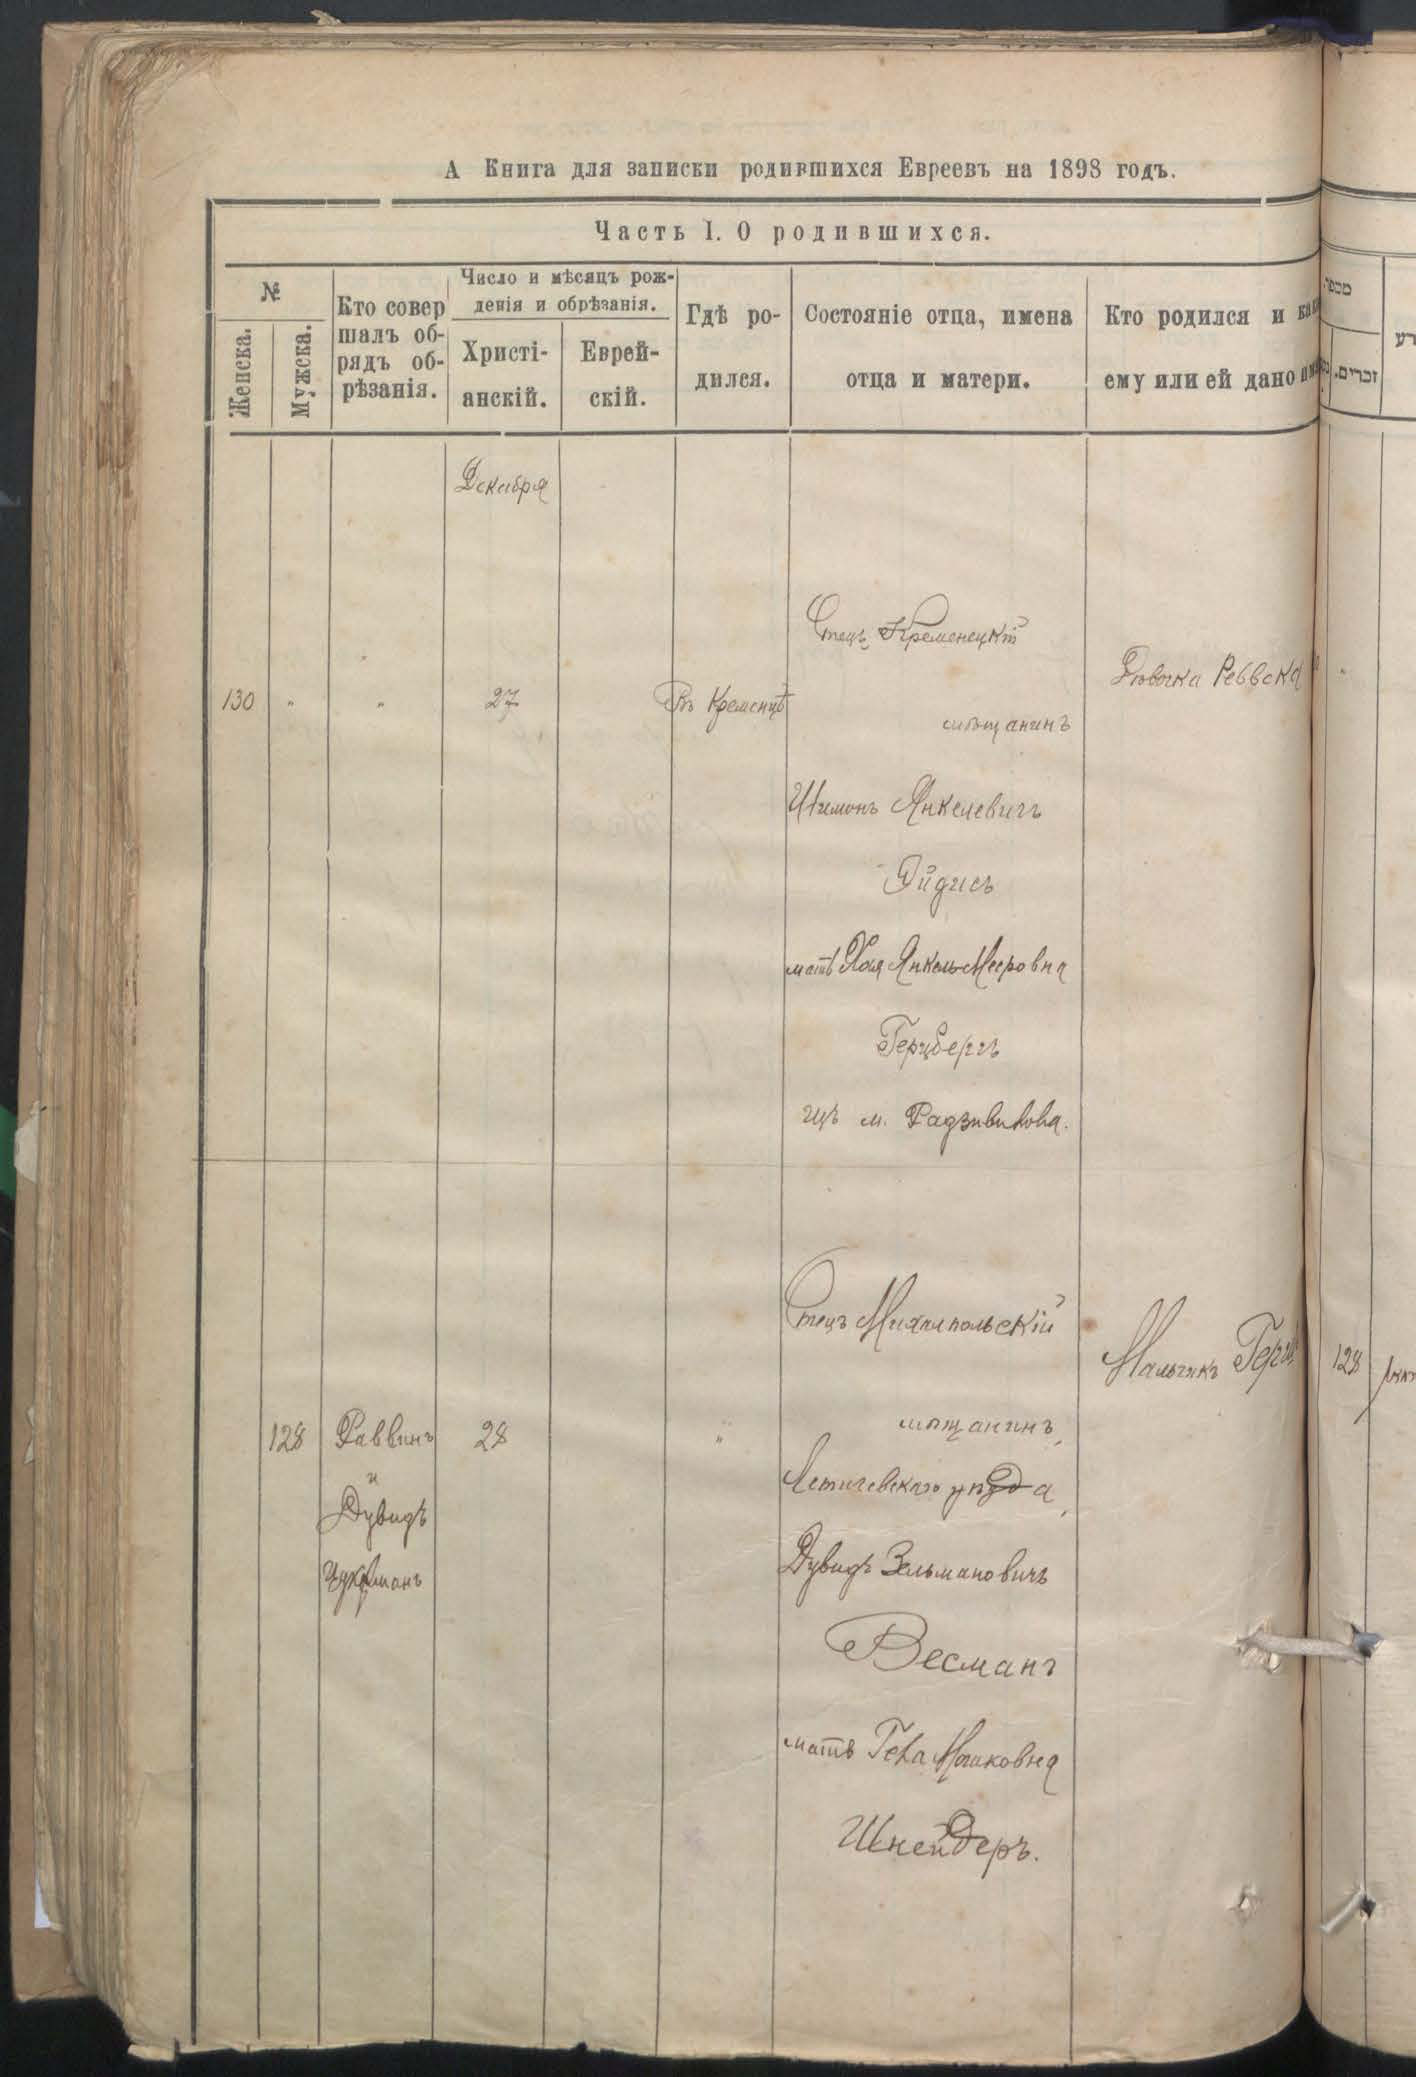 А Книга для записки родившихся Евреевъ на 1898 годъ.
Часть I. О родившихся.
№
Женска.
Мужска.
Кто совер
шалъ об-
рядъ об-
рѣзанія.
Число и мѣсяцъ рож-
денія и обрѣзанія.
Христі-
анскій.
Еврей-
скій.
Гдѣ ро-
дился.
Состояніе отца, имена
отца и матери.
Кто родился и
ему или ей дано
זכרים.
Декабря
130 " " 27 Въ Кременцѣ
Отецъ Кременецкій
мѣщанинъ
Шимонъ Янкелевичъ
Эйдисъ
мать Хая Янкель-Мееровна
Герцбергъ
изъ м. Радзивилова.
Дѣвочка Реввека
"
128 Раввинъ 28 "
и
Дувидъ
Цукрманъ
Отецъ Михалпольскій
мѣщанинъ,
Летичевскаго уѣзда,
Дувидъ Зельмановичъ
Весманъ
мать Гена Мошковна
Шнейдеръ.
Мальчикъ
128